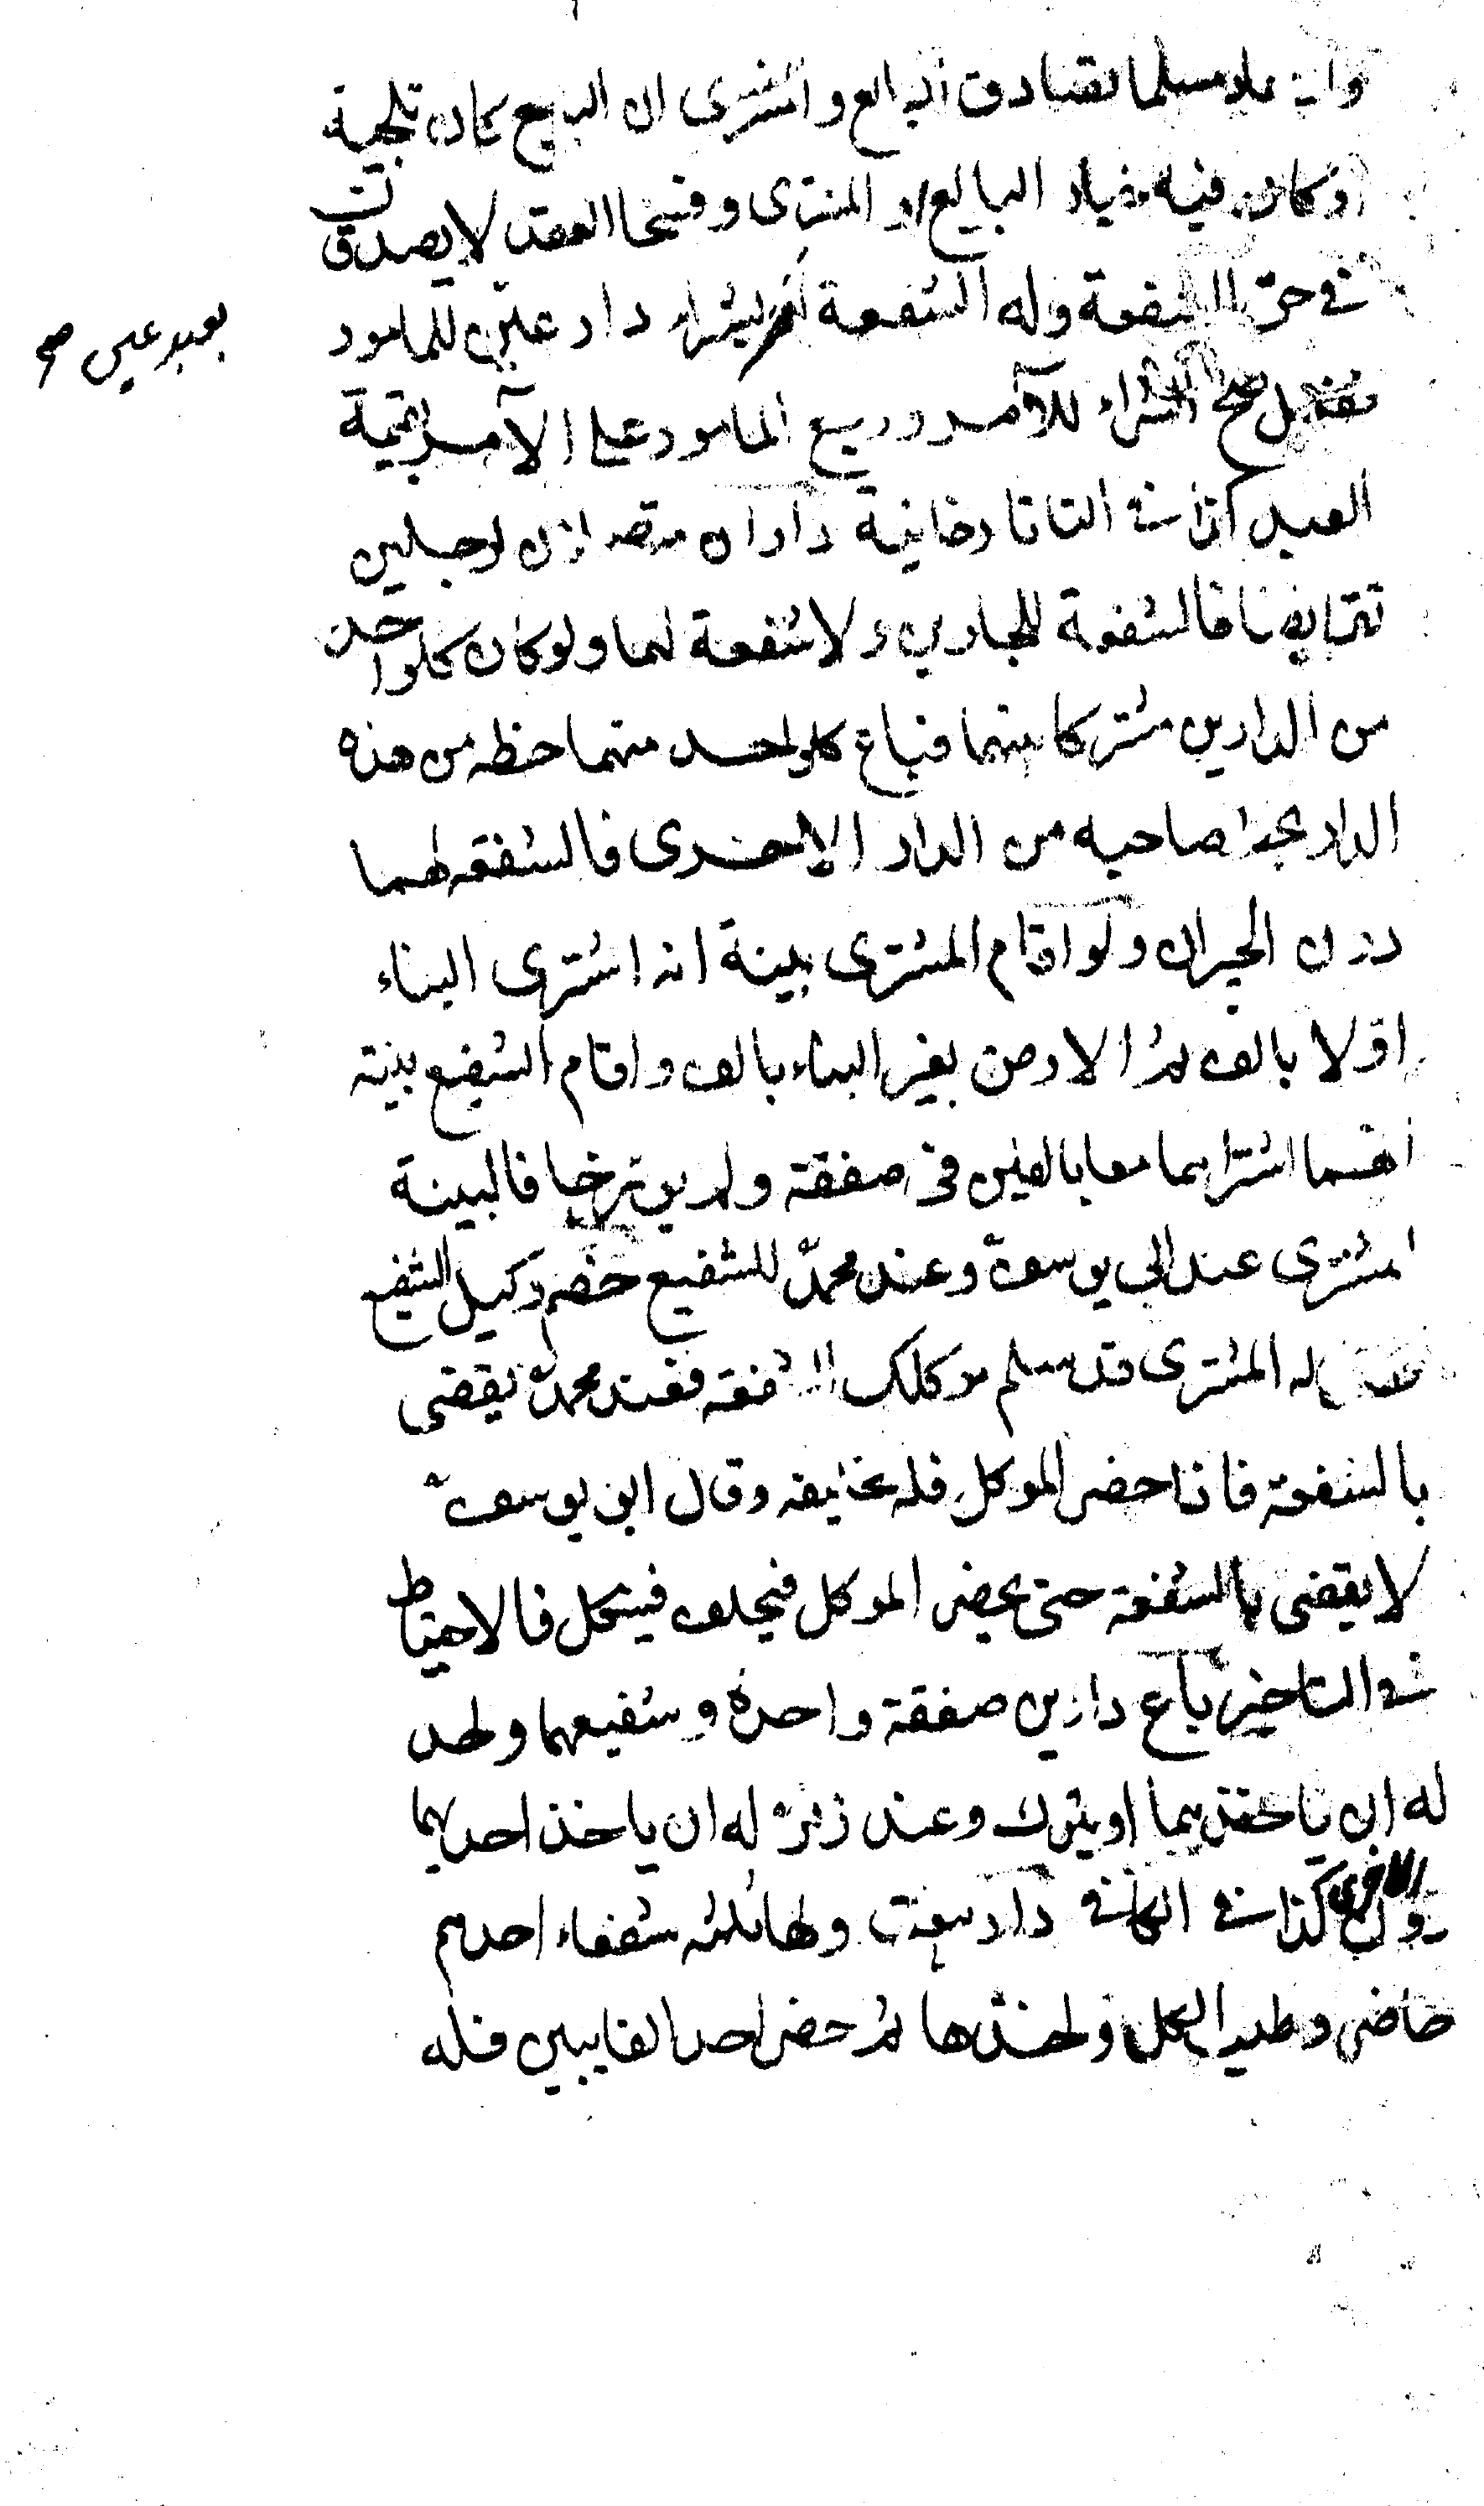 وان علم مسلما تصادق البايع والمشترى ان البيع كان تلجية
او كان فيه خيار البايع او المشترى وفسخا العقد لا يصدق
فى حق الشفعة وله الشفعة امر بشراء دار عين للمامور
بعبد عين صح
ففعل صح الشراء للآمر ورجع المامور على الآمر بقيمة
العبد كذا فى التاتارخانية داران متصلتان لرجلين
تقايضا فالشفعة للجارين ولا شفعة لهما ولو كان كل واحد
من الدارين مشتركا بينهما فباع كل واحد منهما حظه من هذه
الدار بحظ صاحبه من الدار الاخرى فالشفعة لهما
دون الجيران ولو اقام المشترى بينة انه اشترى البناء
اولا بالف ثم الارض بغير البناء بالف واقام الشفيع بينة
انه اشتراهما معا بالفين فى صفقة ولم يؤرخا فالبينة
للمشترى عند ابى يوسف وعند محمد للشفيع خصم وكيل الشفيع
فقال له المشترى قد سلم موكلك الشفعة فعند محمد يقضى
بالشفعة فاذا حضر الموكل فله تحليفه وقال ابو يوسف
لا يقضى بالشفعة حتى يحضر الموكل فيحلف فينكل فالاحتياط
فى التاخير باع دارين صفقة واحدة وشفيعهما واحد
له ان ياخذهما او يترك وعند زفر له ان ياخذ احديهما
دون الاخرى كذا فى الكافى دار بيعت ولها ثلثه شفعاء احدهم
حاضر وطلب الكل واخذها ثم حضر احد الغايبين فله